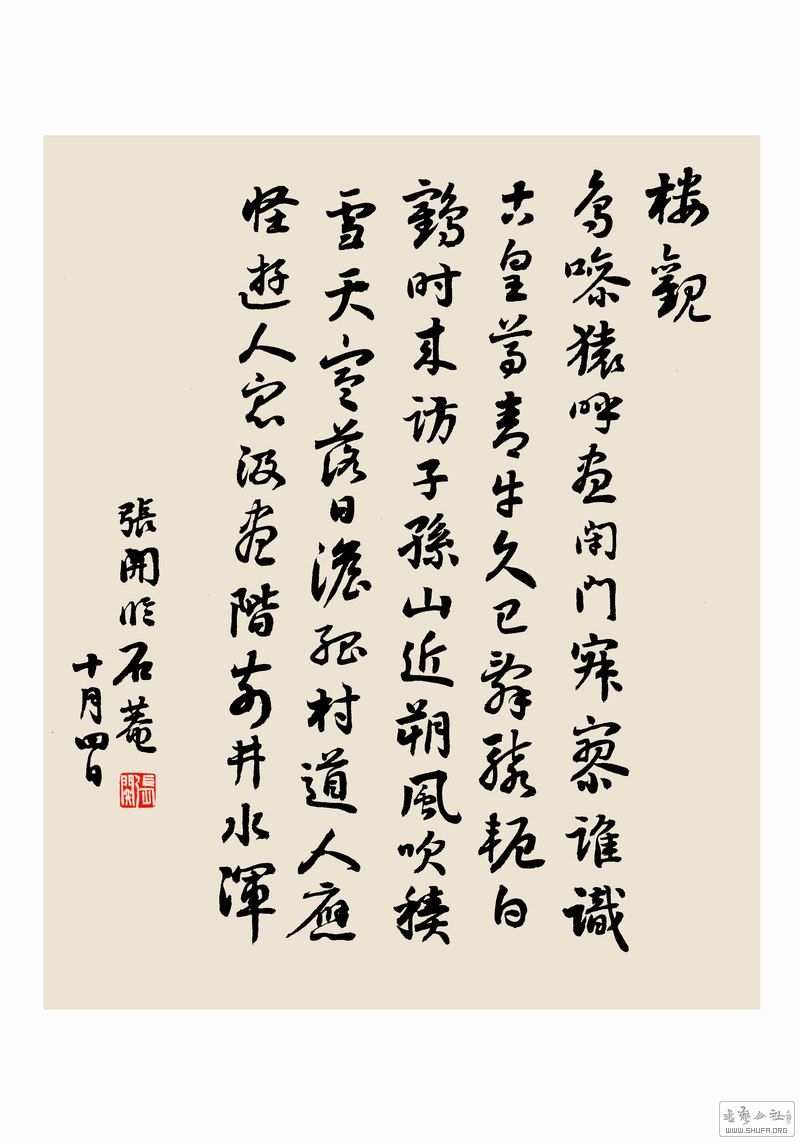 楼觀
鳥噪猿呼晝閉門寂寥誰識
古皇尊青牛久已辭轅軛白
鶴时来访子孫山近朔風吹積
雪天寒落日澹孤村道人應
怪遊人汲盡階前井水渾
張開石菴
十月四日
WWW.SHUFA.ORG